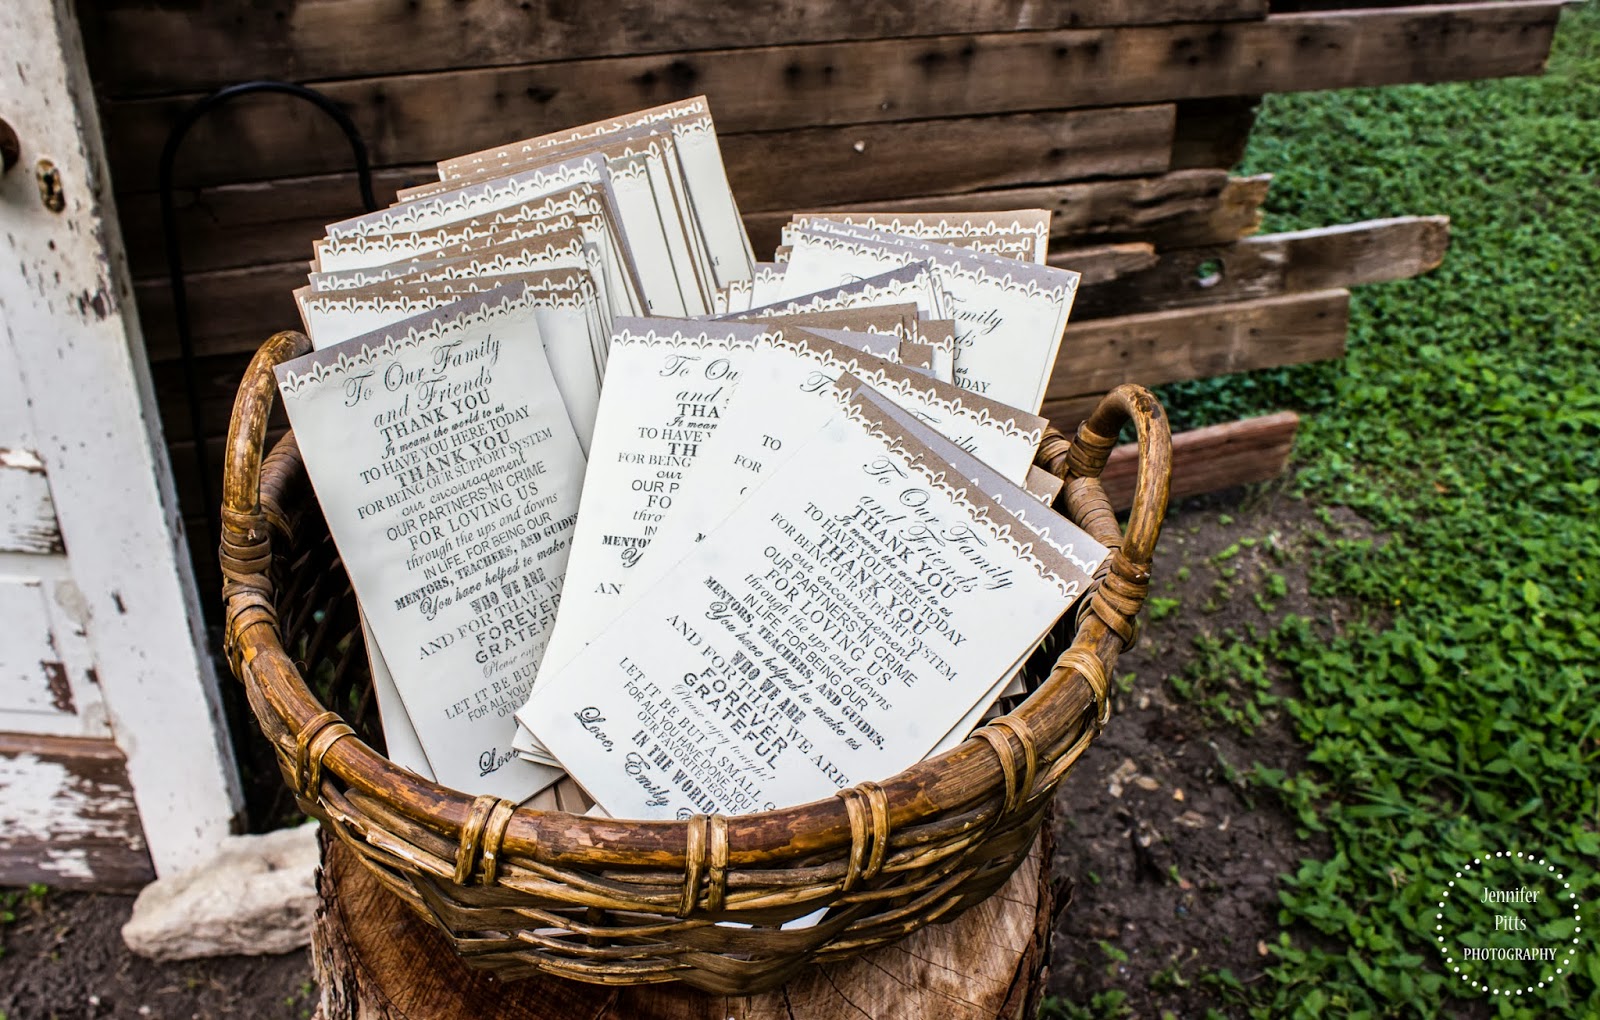 To Our Family
and Friends
THANK YOU
It means the world to us
TO HAVE YOU HERE TODAY
THANK YOU
FOR BEING OUR SUPPORT SYSTEM
our encouragement
OUR PARTNERS IN CRIME
FOR LOVING US
through the ups and downs
IN LIFE, FOR BEING OUR
MENTORS, TEACHERS, AND GUIDES.
You have helped to make
WHO WE ARE
AND FOR THAT WE
FOREVER
GRATEFUL
Please enjoy
LET IT BE BUT
FOR ALL YOU
OUR
Love,
To Our
and
THA
It mean
TO HAVE
TH
FOR BEING
our
OUR P
FO
through
IN
MENTOR
Y
AN
TO
FOR
Family
us
TODAY
To Our Family
and Friends
THANK YOU
It means the world to us
TO HAVE YOU HERE TODAY
THANK YOU
FOR BEING OUR SUPPORT SYSTEM
our encouragement
OUR PARTNERS IN CRIME
FOR LOVING US
through the ups and downs
IN LIFE, FOR BEING OUR
MENTORS, TEACHERS, AND GUIDES.
You have helped to make us
WHO WE ARE
AND FOR THAT WE ARE
FOREVER
GRATEFUL
Please enjoy tonight!
LET IT BE BUT A SMALL
FOR ALL YOU HAVE DONE, YOU
OUR FAVORITE PEOPLE
IN THE WORLD!
Love,
Emily
Jennifer
Pitts
PHOTOGRAPHY